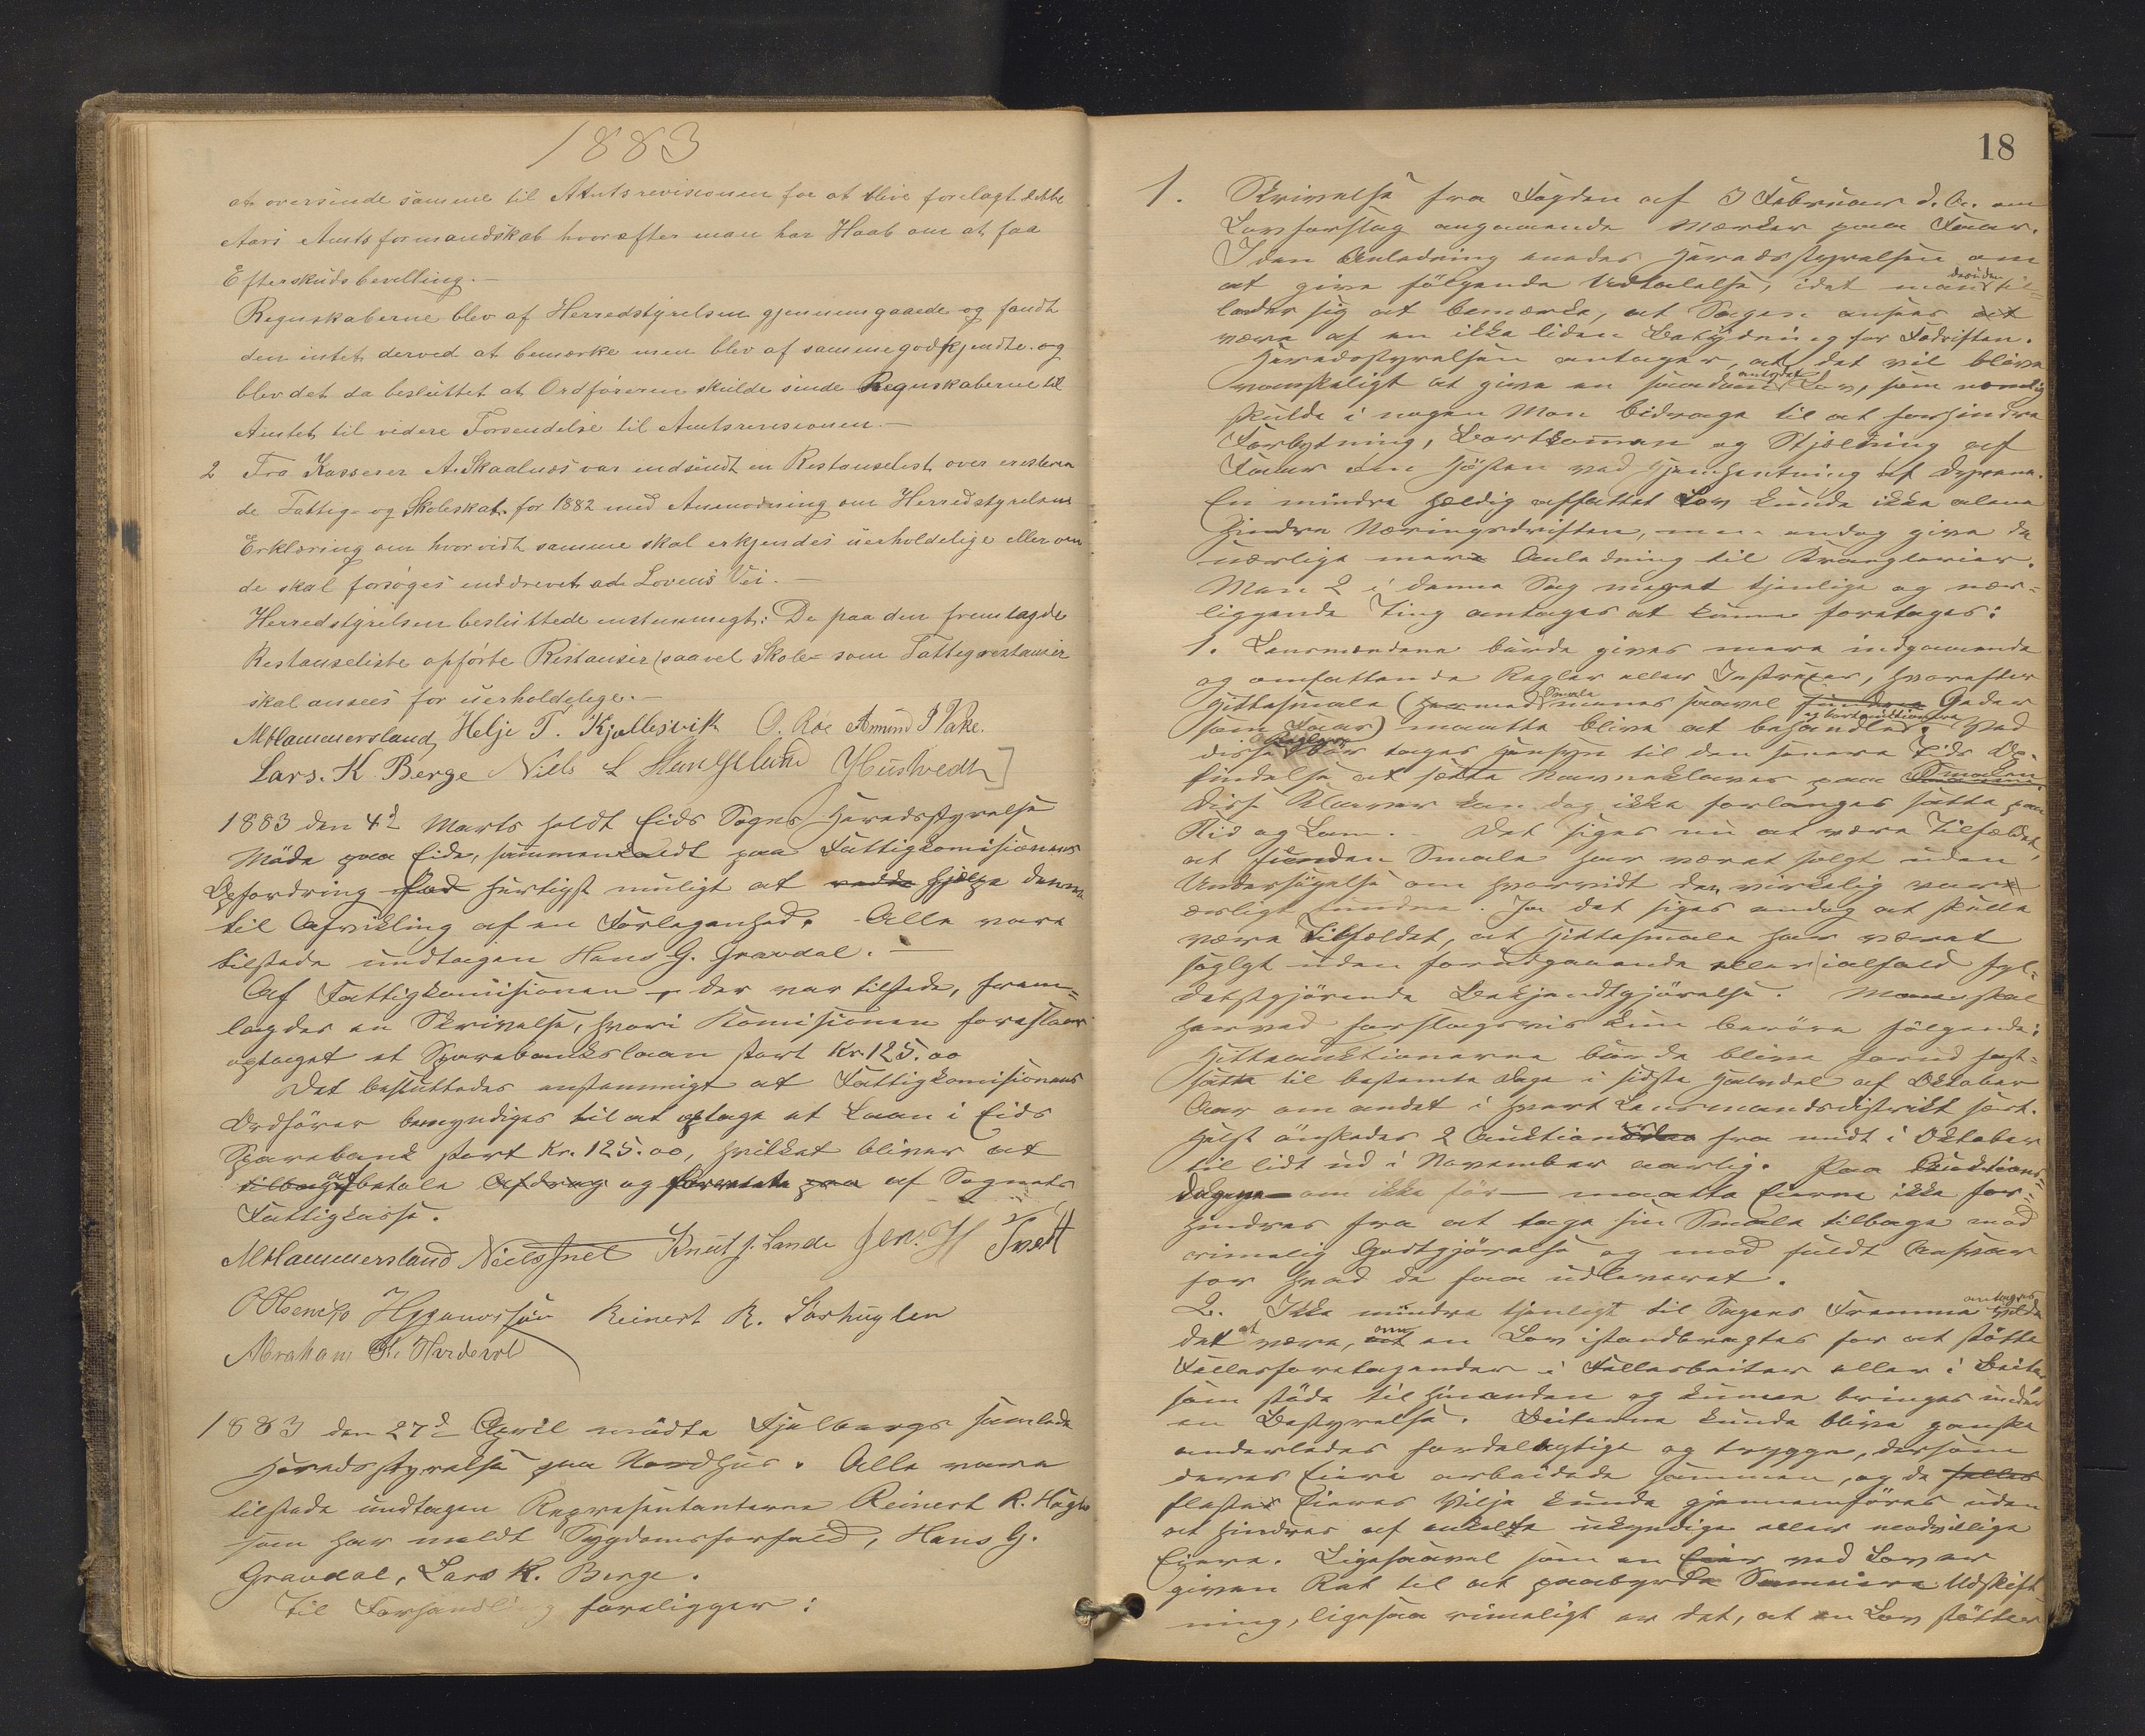 1883
at oversende samme til Amtsrevisionen for at blive forelagt dette
Aars Amtsformandskab hvorefter man har Haab om at faa
Efterskudsbevilling.—
Regnskaberne blev af Herredstyrelsen gjennemgaaede og fandt
den intet derved at bemærke men blev af samme godkjendte og
blev det da besluttet at Ordføreren skulde sende Regnskaberne til
Amtet til videre Forsendelse til Amtsrevisionen.—
2 Fra Kasserer A. Skaalnes var indsendt en Restanseliste over resteren
de Fattig- og Skoleskat for 1882 med Anmodning om Herredstyrelsens
Erklæring om hvorvidt samme skal erkjendes uerholdelige eller om
de skal forsøges inddrevet ad Lovens Vei.—
Herredstyrelsen besluttede enstemmigt: De paa den fremlagde
Restanseliste opførte Restanser (saavel Skole- som Fattigrestanser
skal ansees for uerholdelige.—
M Hammersland Helje T. Kjollesvik O. Røe Amund I Vake.
Lars. K. Berge Niels L Stangeland Hustvedt
1883 den 4de Marts holdt Eids Sogns Heredsstyrelse
Møde paa Eide, sammenkaldt paa Fattigkomisionens
Opfordring hurtigst muligt at hjælpe denne
til Afvikling af en Forlegenhed. Alle vare
tilstede undtagen Hans G. Gravdal.—
Af Fattigkomisionen, der var tilstede, frem=
lagdes en Skrivelse, hvori Komisionen foreslaar
optaget et Sparebankslaan stort Kr. 125.00
Det besluttedes enstemmigt at Fattigkomisionens
Ordfører bemyndiges til at optage et Laan i Eids
Sparebank stort Kr. 125.00, hvilket bliver at
tilbagebetale Afdrag og af Sognets
Fattigkasse.
M Hammersland Niels Knut J. Sande Jen. H Tvedt
Reinert R. Børhuglen
Abraham
1883 den 27de April mødte Fjelbergs samlede
Heredsstyrelse paa Nordhus. Alle vare
tilstede undtagen Representanterne Reinert R. Hugle
som har meldt Sygdomsforfald, Hans G.
Gravdal, Lars K. Berge.
Til Forhandling foreligger:
18
1. Skrivelse fra Fogden af 3 Februar d. A. om
Lovforslag angaaende Mærker paa Faar.
I den Anledning enedes Heredsstyrelsen om
at give følgende Udtalelse, idet man desuden til=
lader sig at bemærke, at Sagen ansees at
være af en ikke liden Betydning for Fædriften.
Heredsstyrelsen antager, at det vil blive
vanskeligt at give en saadan antydet Lov, som nemlig
skulde i nogen Mon bidrage til at forhindre
Forbytning, Bortkommen og Stjæling af
Faar om Høsten ved Hjemhentning af Dyrene.
En mindre heldig affattet Lov kunde ikke alene
hindre Næringsdriften, men endog give de
uærlige mere Anledning til Kranglerier.
Men 2 i denne Sag meget tjenlige og nær=
liggende Ting antages at kunne foretages:
1. Lensmændene burde gives mere indgaaende
og omfattende Regler eller Instruxer, hvorefter
Hittesmale (hermed Smale menes saavel Geder
som Faar) maatte blive at behandle og bortauktionere. Ved
disse Reglers bør tages Hensyn til den senere Tids Op=
findelse at sætte Navneklaver paa Smalen
Disse Klaver kan dog ikke forlanges sætte paa
Kid og Lam.— Det siges nu at være Tilfældet,
at funden Smale har været solgt uden
Undersøgelse om hvorvidt den virkelig var
ærligt funden. Ja det siges endog at skulle
være Tilfældet, at Hittesmale har været
solgt uden forudgaaende eller ialfald fyl=
destgjørende Bekjendtgjørelse. Man skal
herved forslagsvis kun berøre følgende:
Hitteauktionerne burde blive forud fast=
satte til bestemte Dage i sidste Halvdel af Oktober
Aar om andet i hvert Lensmandsdistrikt sært.
Helst ønskedes 2 Auktioner fra midt i Oktober
til lidt ud i November aarlig. Paa Auktions=
dagene — om ikke før — maatte Eierne ikke for=
hindres fra at tage sin Smale tilbage mod
rimelig Godtgjørelse og mod fuldt Ansvar
for hvad de faa udleveret.
2. Ikke mindre tjenligt til Sagens Fremme antages
det at være, om en Lov istandbragtes for at støtte
Fællesforetagender i Fællesbeiter eller i Beiter
som støde til hinanden og kunne bringes under
en Bestyrelse. Beiterne kunde blive ganske
anderledes fordelagtige og trygge, dersom
deres Eiere arbeidede sammen, og de
fleste Eieres Vilje kunde gjennemføres uden
at hindres af enkelte ukyndige eller modvillige
Eiere. Ligesaavel som en Eier ved Lov er
given Ret til at paabyrde Sameiere Udskift
ning, ligesaa rimeligt er det, at en Lov støtter